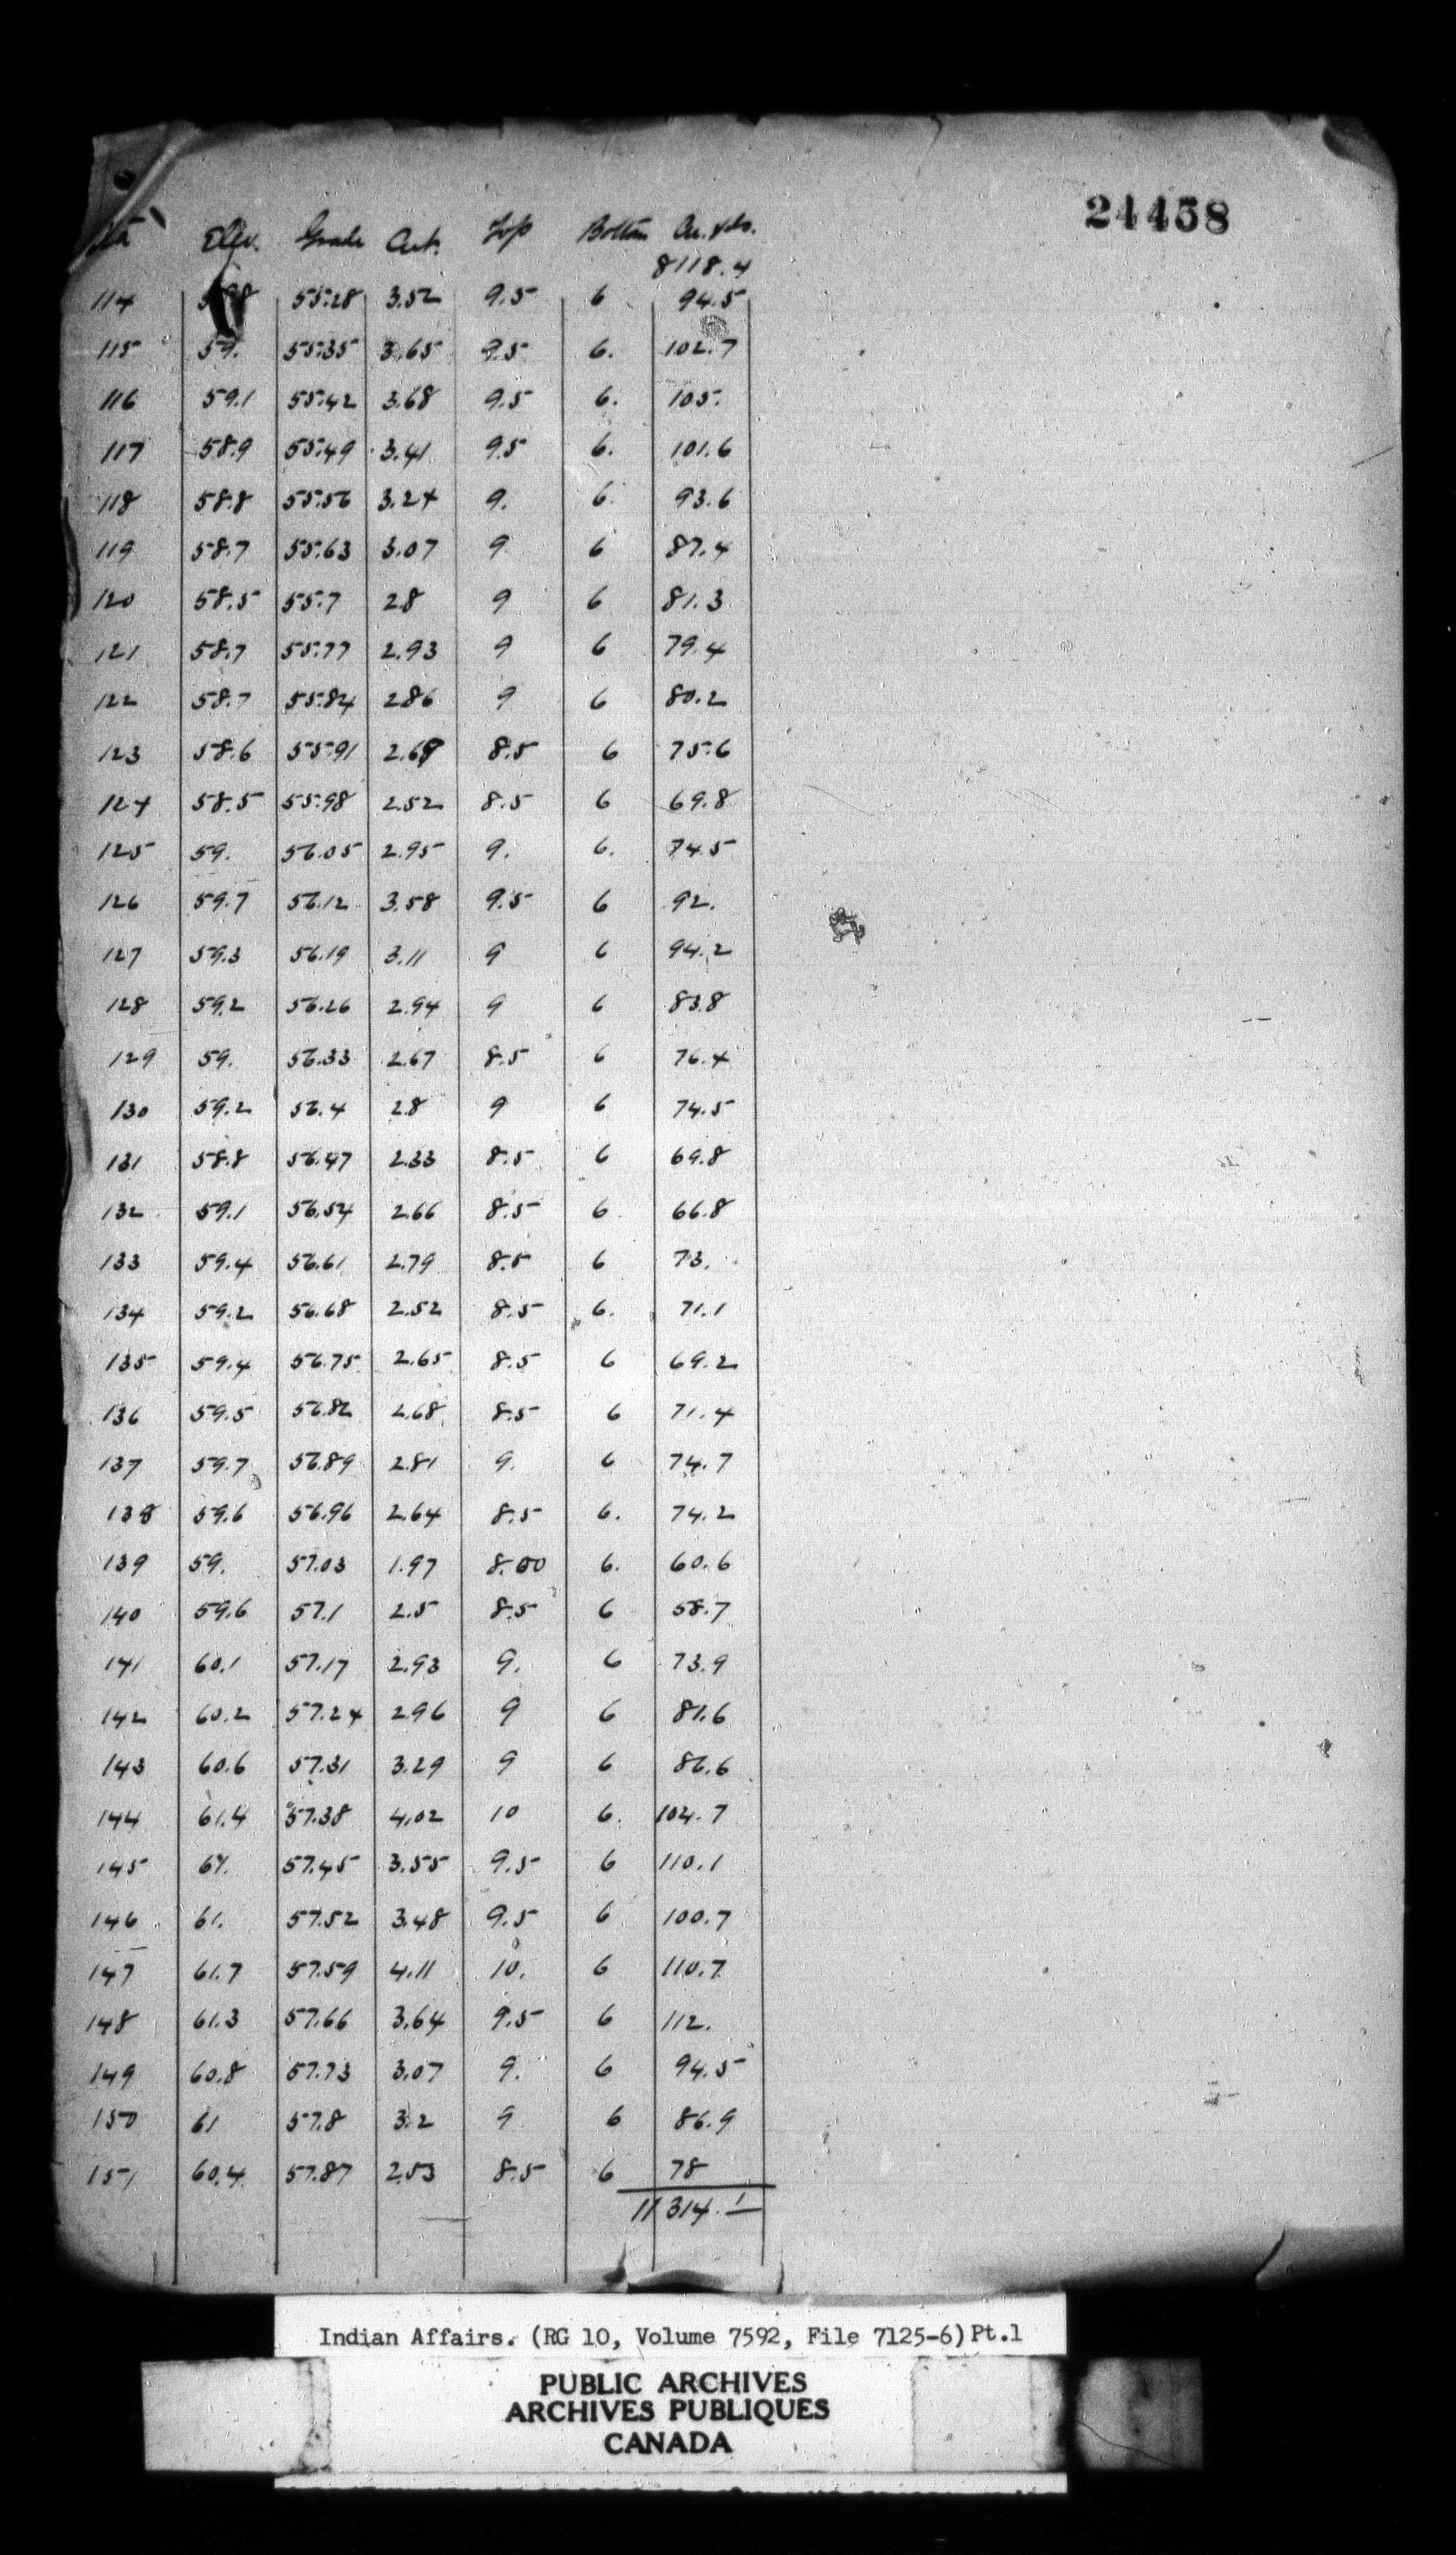 24458
Sta Elev. Grade Cut. Top Bottom Cu. Yds.
8118.4
114 58.8 55.28 3.52 9.5 6 94.5
115 59. 55.35 3.65 9.5 6. 102.7
116 59.1 55.42 3.68 9.5 6. 105.
117 58.9 55.49 3.41 9.5 6. 101.6
118 58.8 55.56 3.24 9. 6. 93.6
119 58.7 55.63 3.07 9 6 87.4
120 58.5 55.7 2.8 9 6 81.3
121 58.7 55.77 2.93 9 6 79.4
122 58.7 55.84 2.86 9 6 80.2
123 58.6 55.91 2.69 8.5 6 75.6
124 58.5 55.98 2.52 8.5 6 69.8
125 59. 56.05 2.95 9. 6. 74.5
126 59.7 56.12 3.58 9.5 6 92.
127 59.3 56.19 3.11 9 6 94.2
128 59.2 56.26 2.94 9 6 83.8
129 59. 56.33 2.67 8.5 6 76.4
130 59.2 56.4 2.8 9 6 74.5
131 58.8 56.47 2.33 8.5 6 69.8
132 59.1 56.54 2.66 8.5 6 66.8
133 59.4 56.61 2.79 8.5 6 73.
134 59.2 56.68 2.52 8.5 6. 71.1
135 59.4 56.75 2.65 8.5 6 69.2
136 59.5 56.82 2.68 8.5 6 71.4
137 59.7 56.89 2.81 9. 6 74.7
138 59.6 56.96 2.64 8.5 6. 74.2
139 59. 57.03 1.97 8.00 6. 60.6
140 59.6 57.1 2.5 8.5 6 58.7
141 60.1 57.17 2.93 9. 6 73.9
142 60.2 57.24 2.96 9 6 81.6
143 60.6 57.31 3.29 9 6 86.6
144 61.4 57.38 4.02 10 6. 104.7
145 61. 57.45 3.55 9.5 6 110.1
146 61. 57.52 3.48 9.5 6 100.7
147 61.7 57.59 4.11 10. 6 110.7
148 61.3 57.66 3.64 9.5 6 112.
149 60.8 57.73 3.07 9. 6 94.5
150 61 57.8 3.2 9 6 86.9
151 60.4 57.87 2.53 8.5 6 78
11314.1
Indian Affairs. (RG 10, Volume 7592, File 7125-6) Pt.1
PUBLIC ARCHIVES
ARCHIVES PUBLIQUES
CANADA